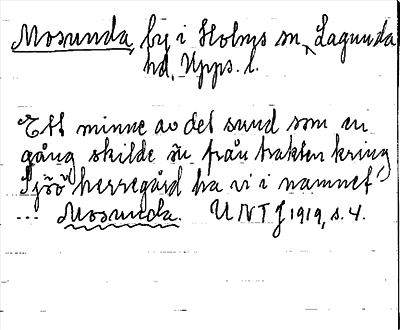 Mosunda, by i Holms sn, Lagunda
hd, Upps. l.
Ett minne av det sund som en
gång skilde ön från trakten kring
Sjöö herregård ha vi i namnet
... Mosunda. UNTJ 1919, s. 4.